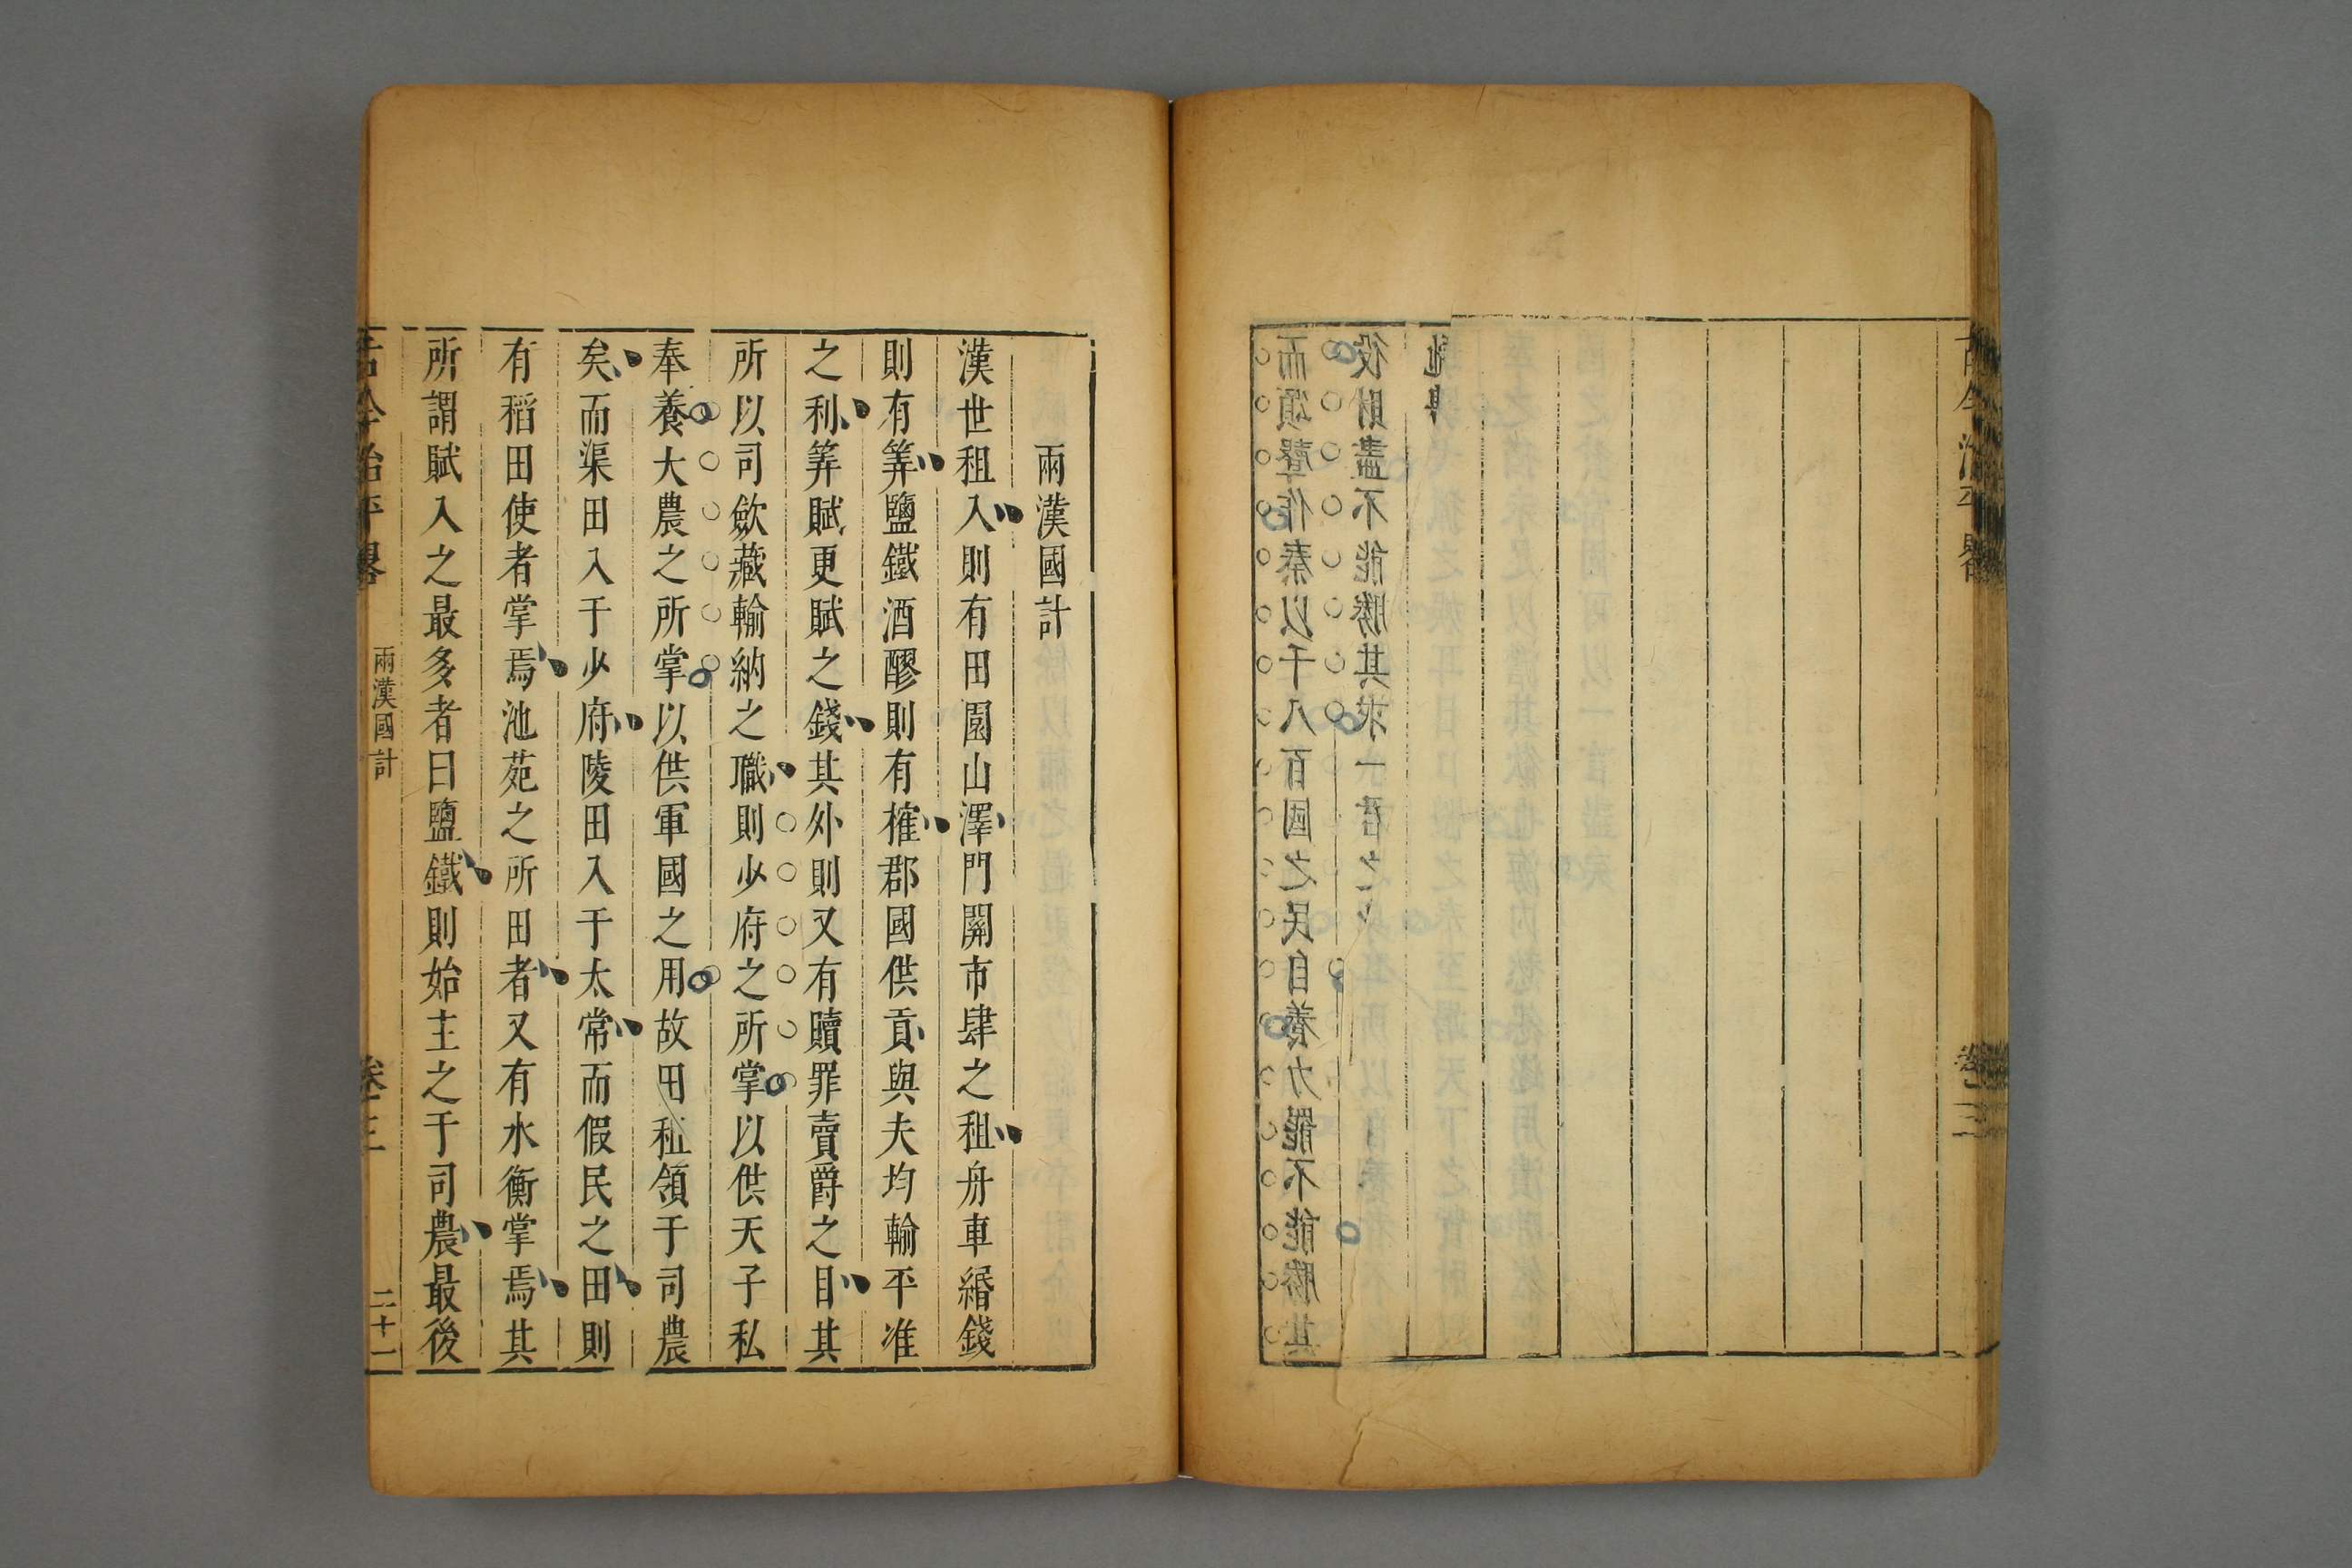 古今治平畧 卷三
而頌聲作秦以千八百國之民自養力罷不能勝其
役財盡不能勝其求一君之
馳騁
兩漢國計
漢世租入則有田園山澤門關市肆之租舟車緡錢
則有筭鹽鐵酒醪則有榷郡國供貢與夫均輸平准
之利筭賦更賦之錢其外則又有贖罪賣爵之目其
所以司歛藏輸納之職則少府之所掌以供天子私
奉養大農之所掌以供軍國之用故田租領于司農
矣而渠田入于少府陵田入于太常而假民之田則
有稻田使者掌焉池苑之所田者又有水衡掌焉其
所謂賦入之最多者曰鹽鐵則始主之于司農最後
古今治平畧 兩漢國計 卷三 二十一